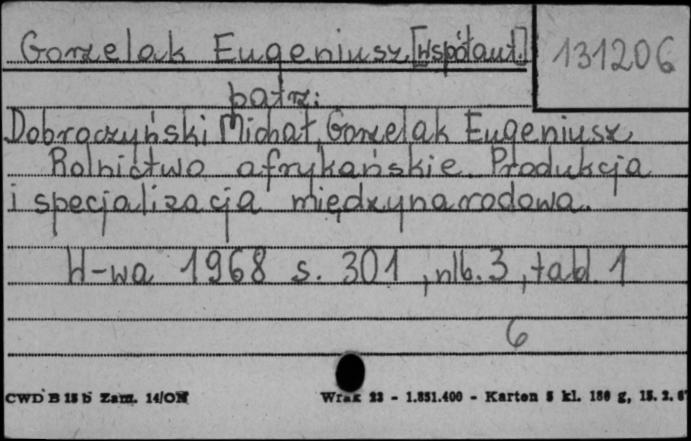 Gorzelak Eugeniusz [współaut.]
131206
patrz:
Dobroczyński Michał, Gorzelak Eugeniusz
Rolnictwo afrykańskie. Produkcja
i specjalizacja międzynarodowa.
W-wa 1968 s. 301, nlb. 3, tabl. 1
6
CWD B 15 b Zam. 14/ON
Wrak 23 - 1.851.400 - Karton 5 kl. 180 g, 15. 2. 6